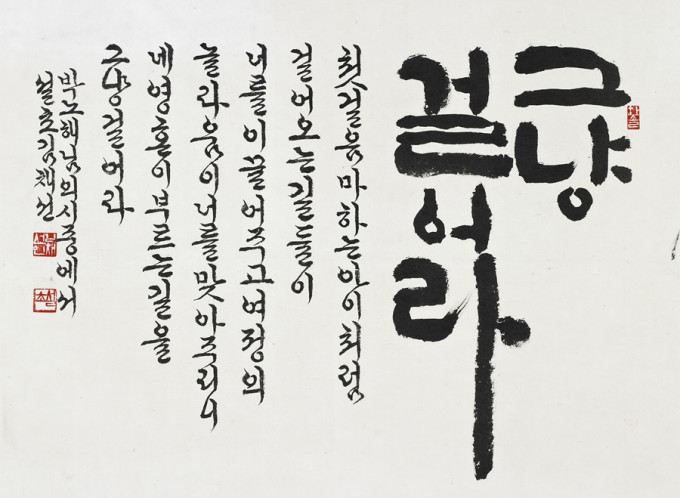 그냥
걸어라
첫걸음마하는아이처럼
걸어오는길들이
너를이끌어주고여정의
놀라움이너를맞아주리니
네영혼이부르는길을
그냥걸어라
박노해님의시중에서